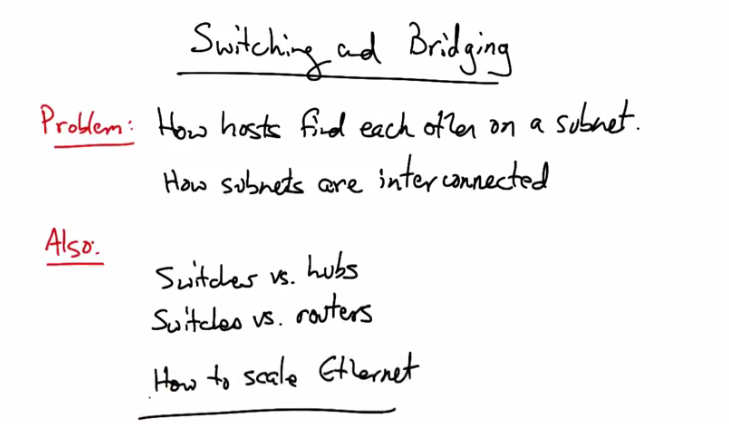 Switching and Bridging
Problem: How hosts find each other on a subnet.
How subnets are interconnected
Also:
Switches vs. hubs
Switches vs. routers
How to scale Ethernet